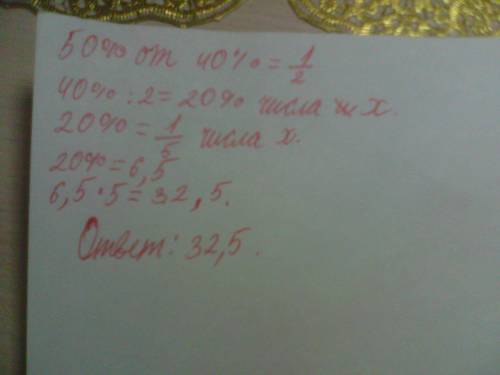 50% от 40% = 1/2
40% : 2 = 20% числа х.
20% = 1/5 числа х.
20% = 6,5
6,5 · 5 = 32,5.
Ответ: 32,5.